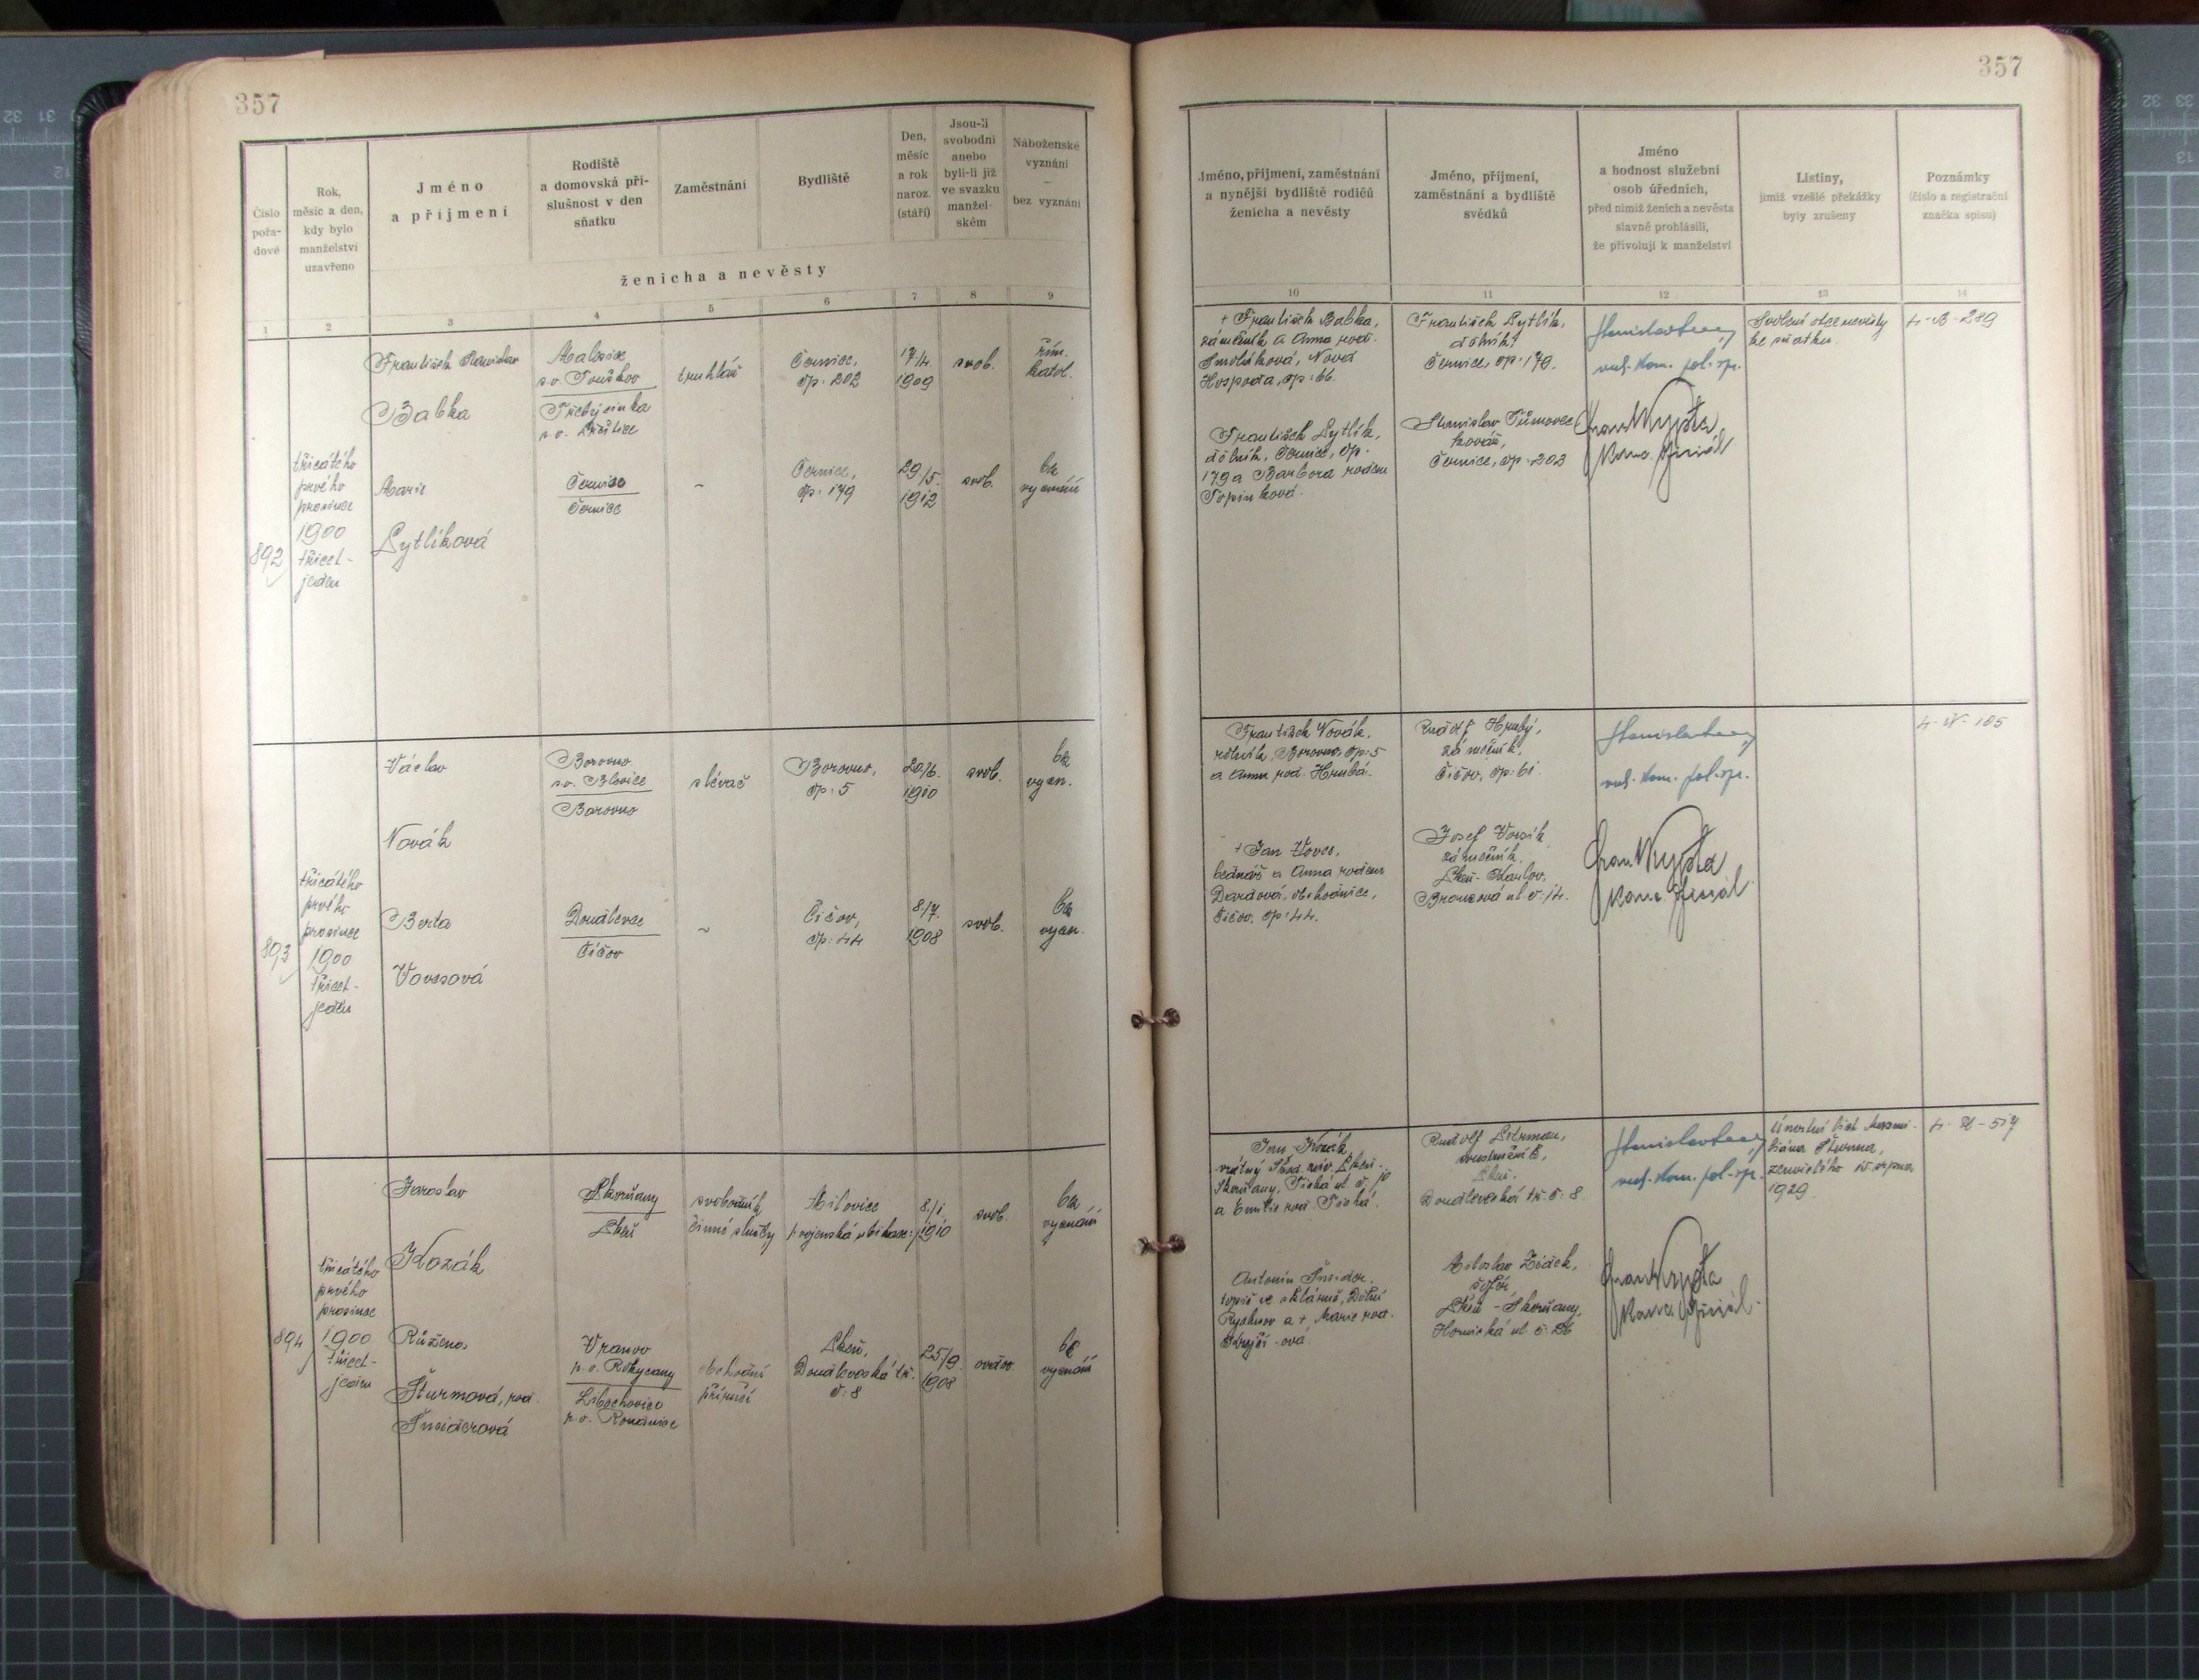 357
Číslo
pořa-
dové
Rok,
měsíc a den,
kdy bylo
manželství
uzavřeno
Jméno
a příjmení
Rodiště
a domovská pří-
slušnost v den
sňatku
Zaměstnání
Bydliště
Den,
měsíc
a rok
naroz.
(stáří)
Jsou-li
svobodni
anebo
byli-li již
ve svazku
manžel-
ském
Náboženské
vyznání
—
bez vyznání
ženicha a nevěsty
1 2 3 4 5 6 7 8 9
892
třicátého
prvého
prosince
1900
třicet-
jeden
František Stanislav
Babka
Malesice
p.o. Touškov
Třebýcinka
truhlář
Černice,
čp. 202
17./4.
1909
svob.
řím.
katol.
Marie
Lytlíková
Černice
Černice
~
Černice,
čp. 179
29./5.
1912
svob.
bez
vyznání
893
třicátého
prvého
prosince
1900
třicet-
jeden
Václav
Novák
Borovno
p.o. Blovice
Borovno
slévač
Borovno,
čp. 5
20./6.
1910
svob.
bez
vyzn.
Berta
Vovsová
Doudlevce
Čičov
~
Čičov,
čp. 44
8./7.
1908
svob.
bez
vyzn.
894
třicátého
prvého
prosince
1900
třicet-
jeden
Jaroslav
Kozák
Skvrňany
Plzeň
svobodník
činné služby
Milovice
/:vojenská ubikace:/
8./1.
1910
svob.
bez
vyznání
Růžena
Šturmová, roz.
Šneiderová
Vranov
p.o. Rokycany
Libochovice
p.o. Roudnice
obchodní
příručí
Plzeň,
Doudlevecká tř.
č. 8
25./9.
1908
ovdov.
bez
vyznání
357
Jméno, příjmení, zaměstnání
a nynější bydliště rodičů
ženicha a nevěsty
Jméno, příjmení,
zaměstnání a bydliště
svědků
Jméno
a hodnost služební
osob úředních,
před nimiž ženich a nevěsta
slavně prohlásili,
že přivolují k manželství
Listiny,
jimiž vzešlé překážky
byly zrušeny
Poznámky
(číslo a registrační
značka spisu)
10 11 12 13 14
+ František Babka,
zámečník a Anna roz.
Smoláková, Nová
Hospoda, čp. 66.
František Lytlík,
dělník, Černice, čp.
179 a Barbora rozen.
Topinková.
František Lytlík,
dělník,
Černice, čp. 179.
Stanislav Tůmovec
kovář,
Černice, čp. 202
rad. kom. pol. sp.
Svolení otce nevěsty
ke sňatku.
4-B-289
František Novák,
rolník, Borovno, čp. 5
a Anna roz. Hrubá.
+ Jan Voves,
bednář a Anna rozen.
Dardová, obchodnice,
Čičov, čp. 44.
Rudolf Hrubý,
zámečník,
Čičov, čp. 61.
Josef
zámečník,
Plzeň-Karlov,
Bronzová ul. č. 14.
rad. kom. pol. sp.
4-N-105
Jan Kozák,
vrátný Škod. záv. Plzeň-
Skvrňany, Tichá ul. č. 10
a Emilie roz. Tichá.
Antonín Šneider,
topič ve sklárně, Dolní
Rychnov a + Marie roz.
Rudolf
soustružník,
Plzeň,
Doudlevecká tř. č. 8
Miloslav Zídek,
šofér,
Plzeň-Skvrňany,
Hornická ul. č. 26
rad. kom. pol. sp.
Úmrtní list Maxmi-
liána Šturma,
zemřelého 15. srpna
1929.